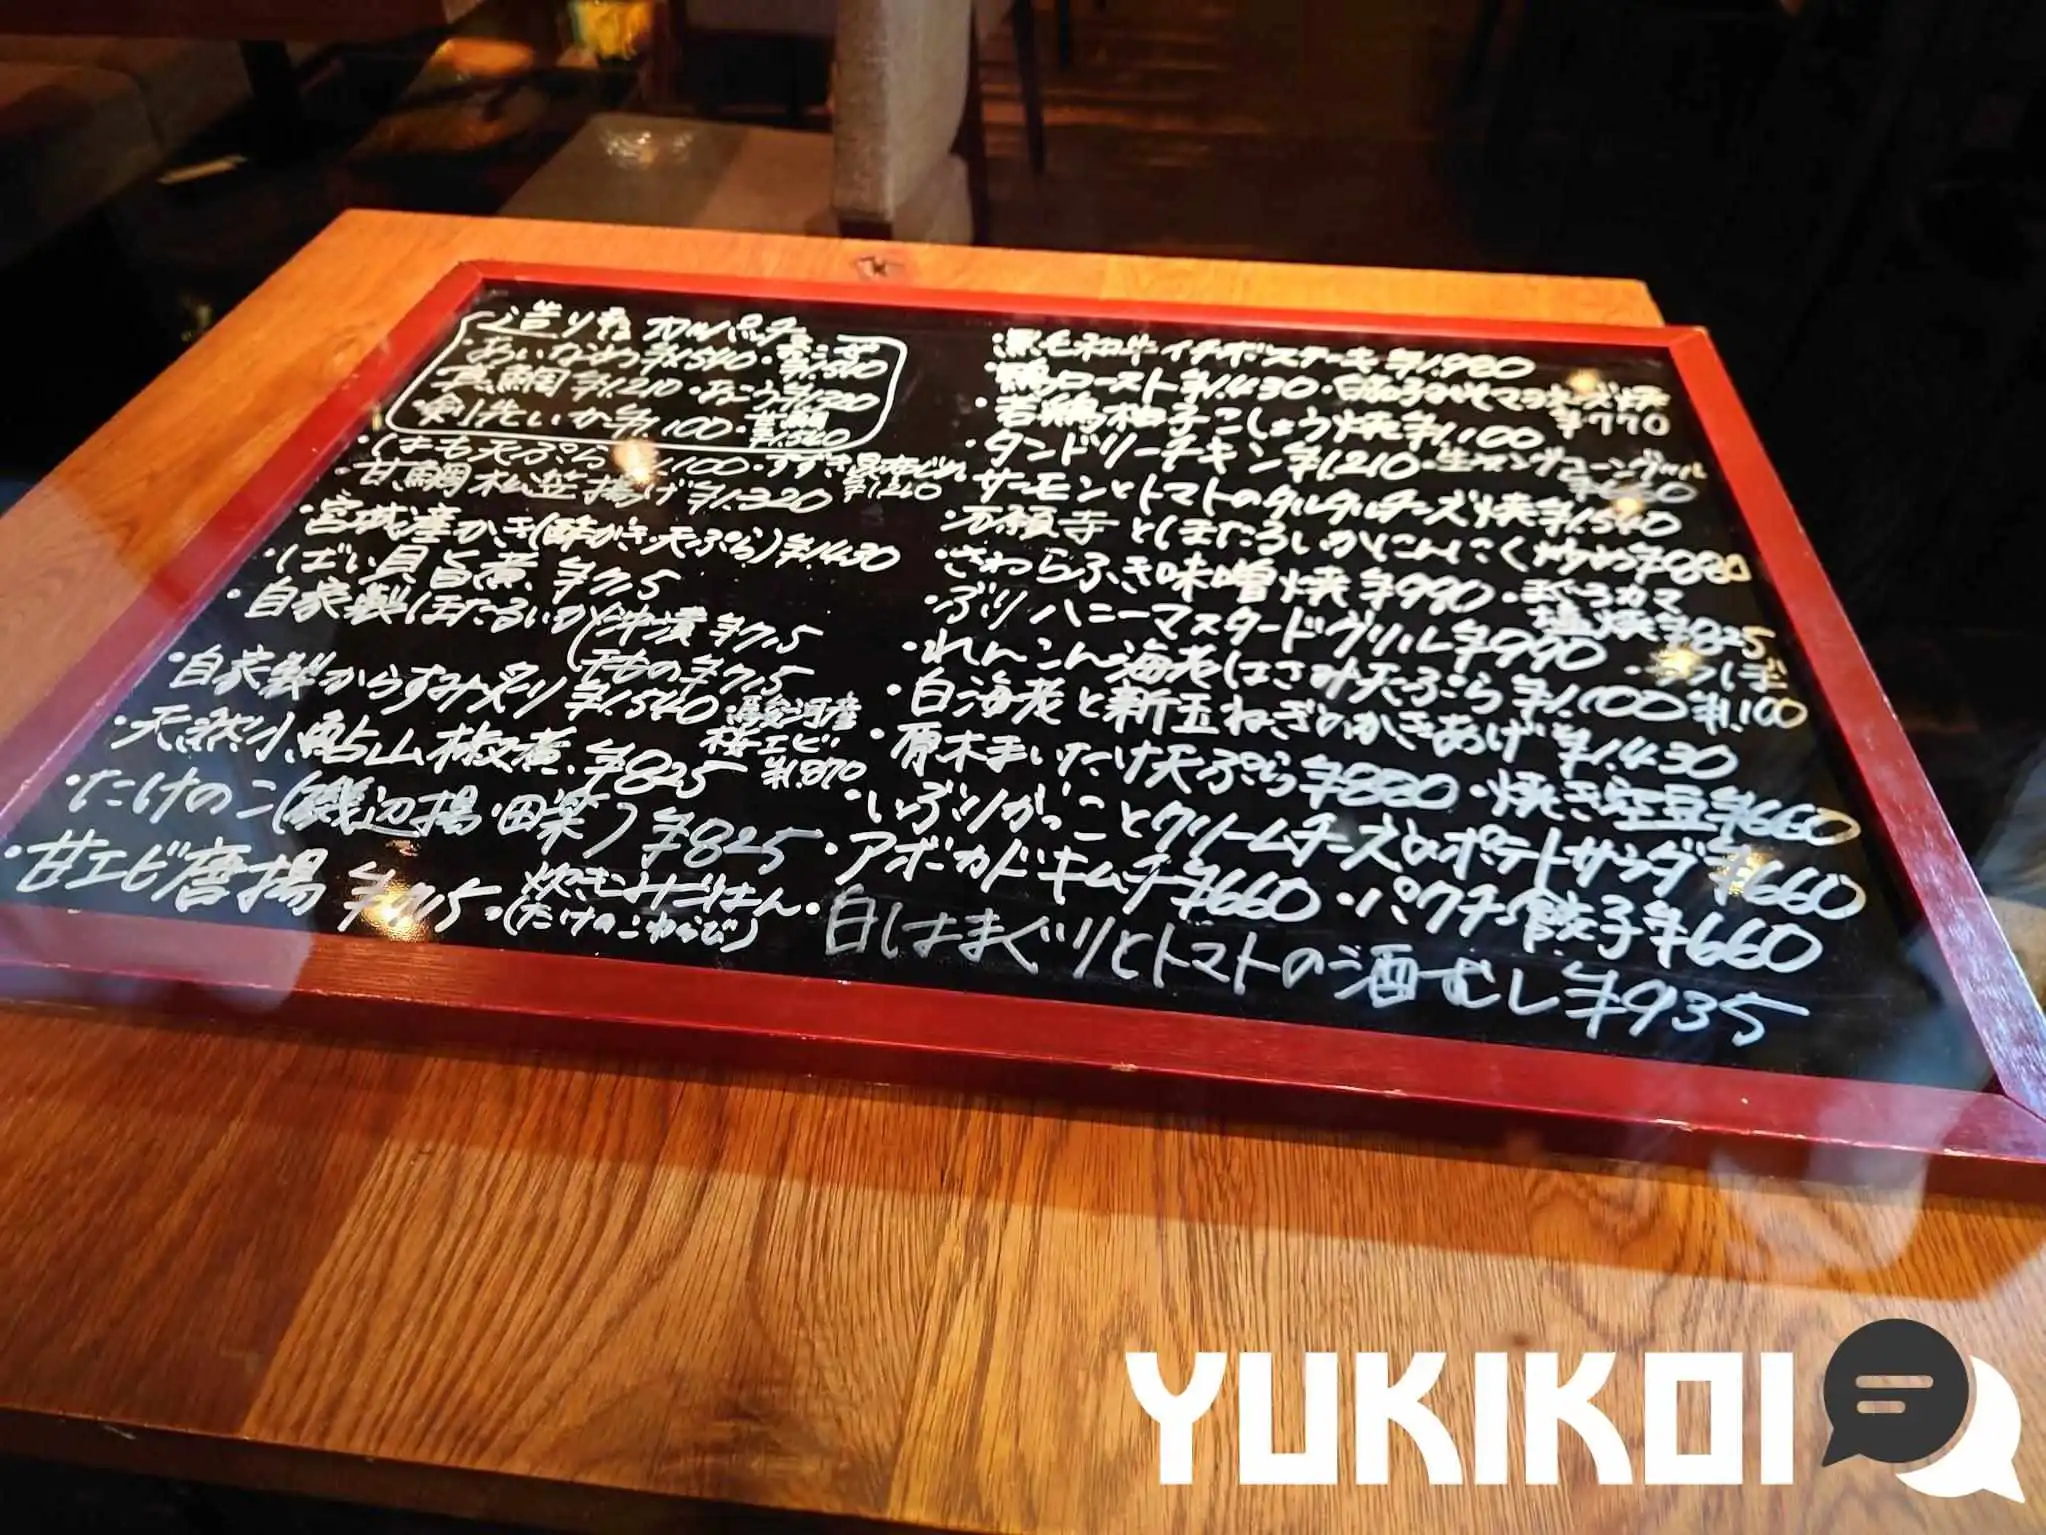 造り者 カルパッチョ
・あいなめ ¥1.540
¥1.540
真鯛 ¥1.210 ・あこう ¥1.320
剣先いか ¥1.100 ・
¥1.540
・はも天ぷら ¥1.100 ・すずき昆布じめ
¥1.210
・甘鯛松笠揚げ ¥1.320
・宮城産かき(酢がき・天ぷら) ¥1.430
・ばい貝旨煮 ¥715
・自家製ほたるいか(沖漬 ¥715
¥715
・自家製からすみ炙り ¥1.540
・駿河産
桜エビ
¥1.870
・天然小鮎山椒煮 ¥825
・たけのこ(磯辺揚・田楽) ¥825
・甘エビ唐揚 ¥715
・炊きこみごはん
(たけのこわらび)
黒毛和牛イチボステーキ ¥1.980
・鴨ロースト ¥1.430 ・明太子マヨネーズ焼
¥770
・若鶏柚子こしょう焼 ¥1.100
・タンドリーチキン ¥1.210 ・生ヤングコーングリル
¥660
・サーモンとトマトのタルタルチーズ焼 ¥1.540
・万願寺とほたるいかにんにく炒め ¥880
・さわらふき味噌焼 ¥990 ・まぐろカマ
塩焼 ¥825
・ぶりハニーマスタードグリル ¥990
・れんこん海老はさみ天ぷら ¥1.100
¥1.100
・白海老と新玉ねぎのかきあげ ¥1.430
・原木まいたけ天ぷら ¥880 ・焼き空豆 ¥660
・いぶりがっことクリームチーズのポテトサラダ ¥660
・アボカドキムチ ¥660 ・パクチー餃子 ¥660
・白はまぐりとトマトの酒むし ¥935
YUKIKOI